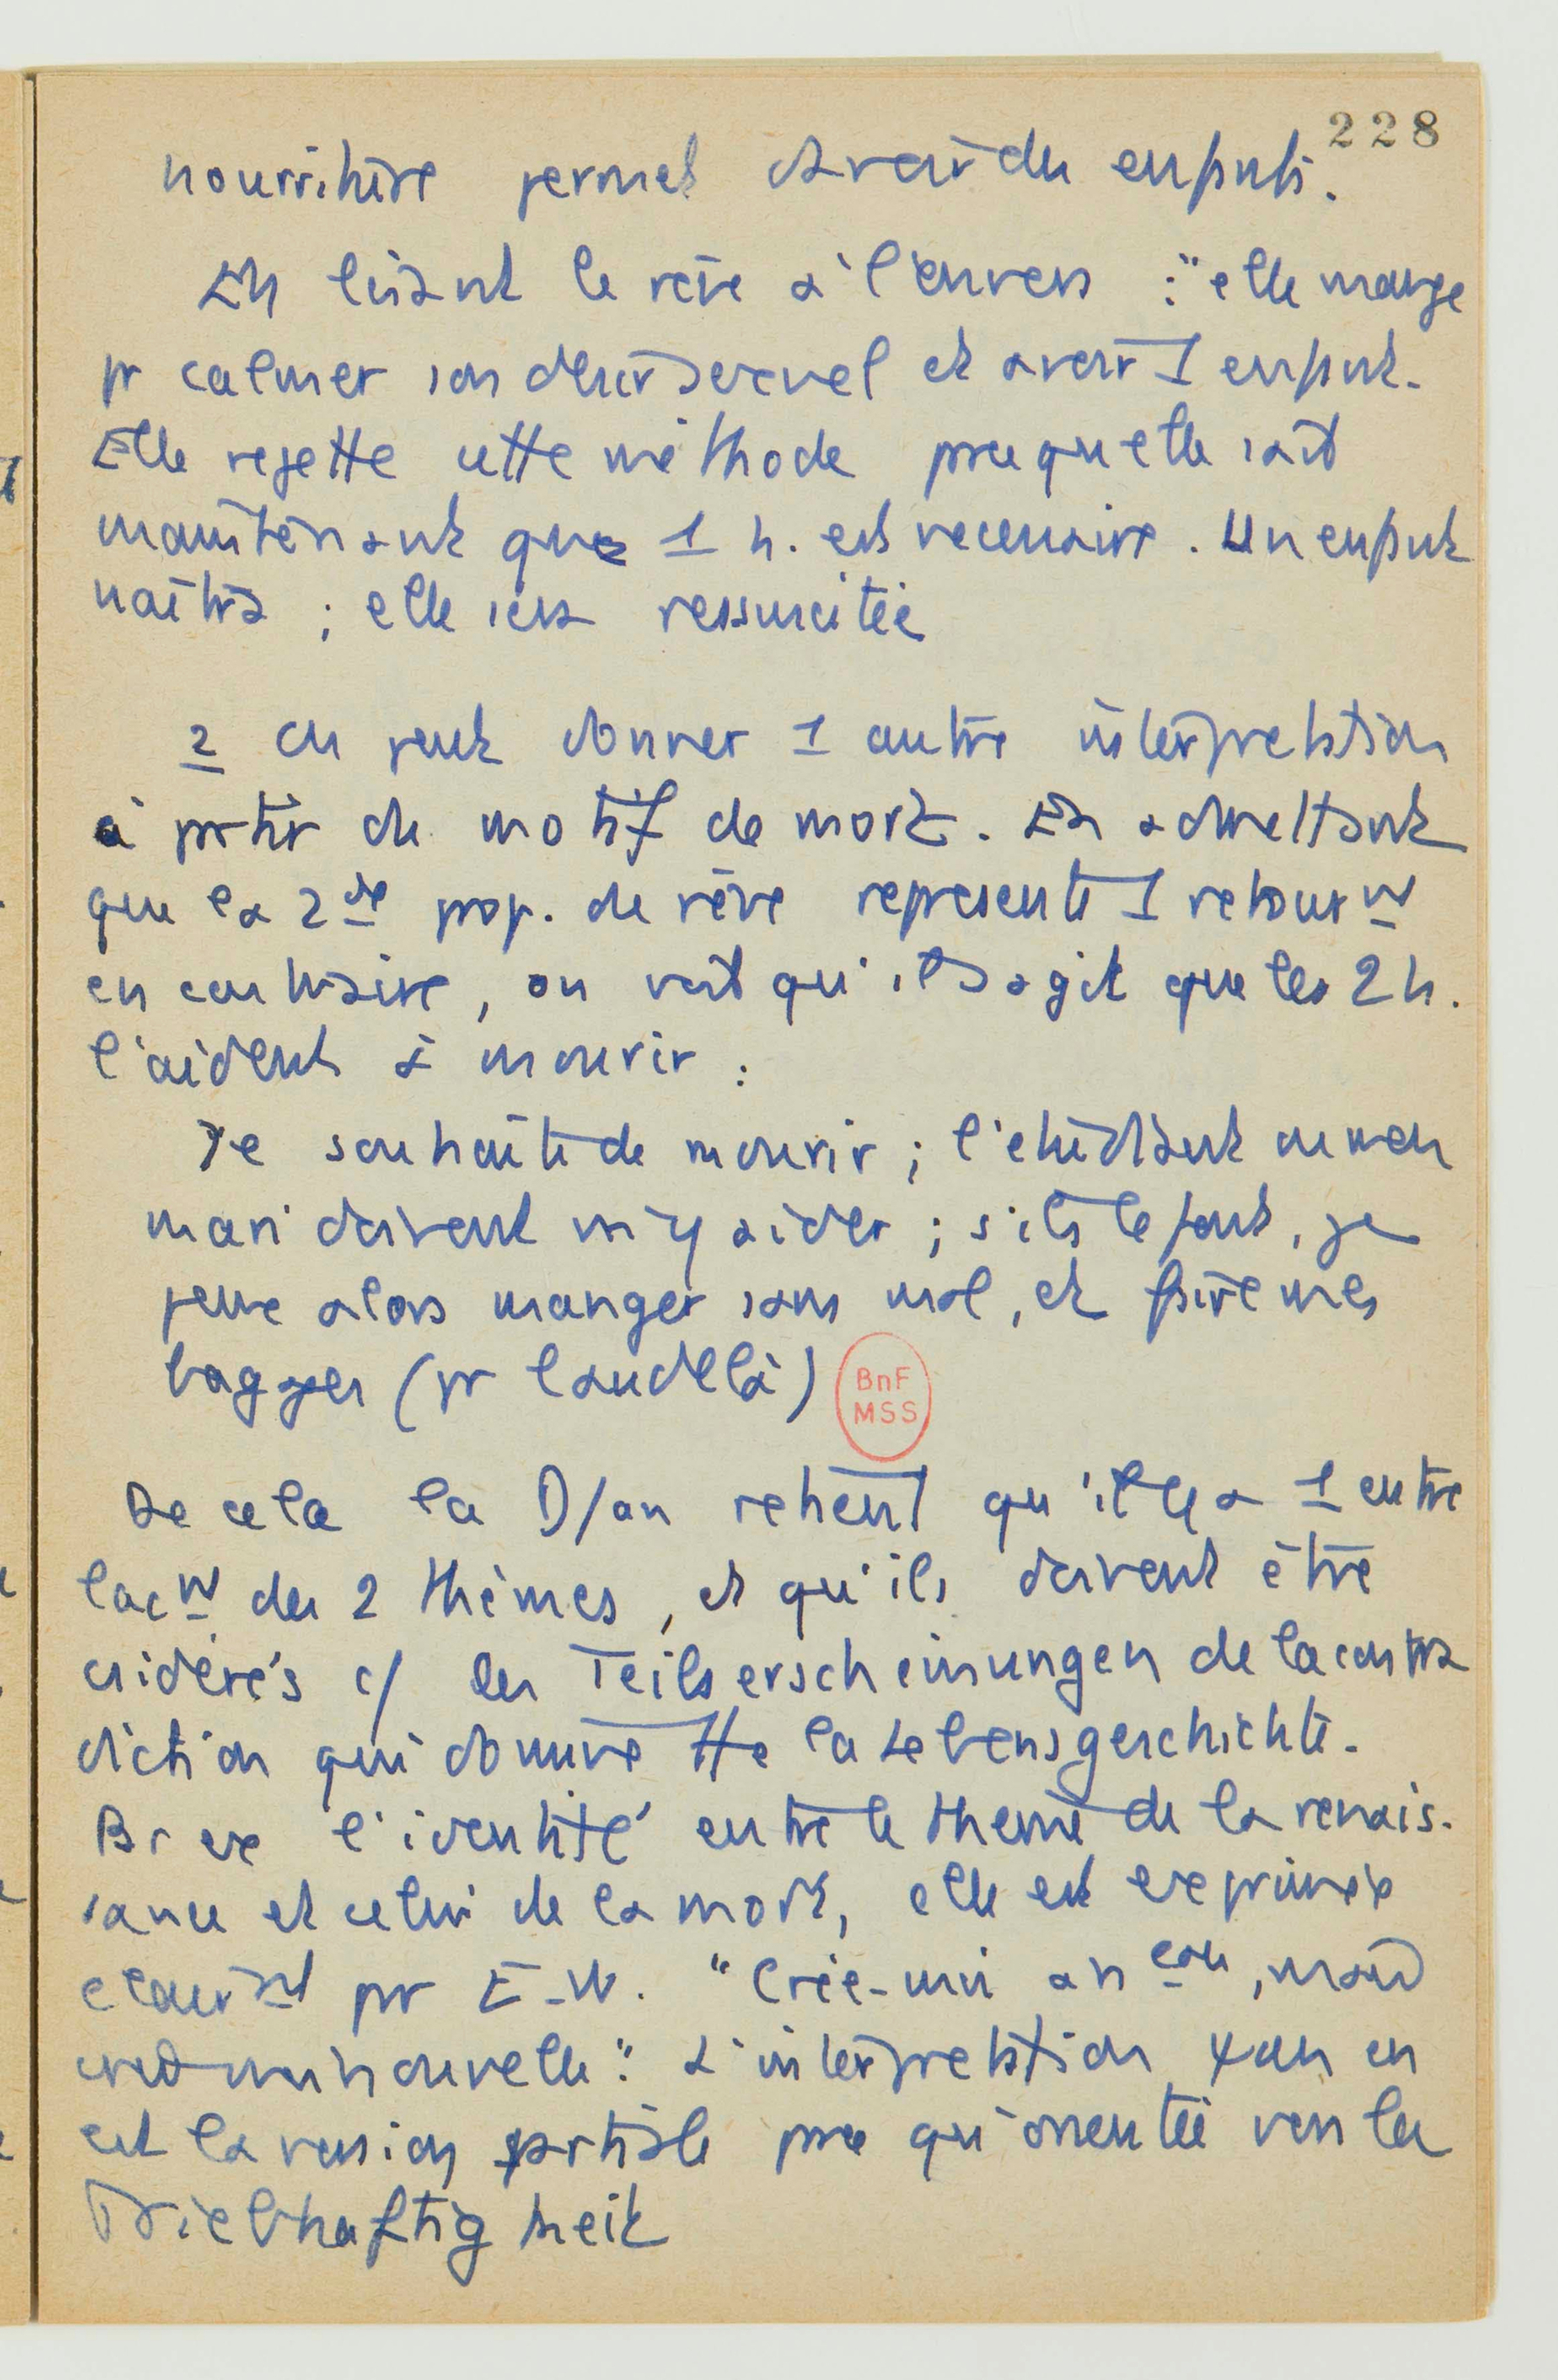 228
nourriture permet d'avoir des enfants.
En lisant le rêve à l'envers : "elle mange
pr calmer son désir sexuel et avoir 1 enfant.
Elle rejette cette méthode pce qu'elle sait
maintenant que 1 h. est necessaire. Un enfant
naîtra ; elle sera ressuscitée
2 On peut donner 1 autre interpretation
à partir du motif de mort. En admettant
que la 2de prop. du rêve represente 1 retournt
en contraire, on voit qu'il s'agit que les 2 h.
l'aident à mourir :
Je souhaite de mourir ; l'etudiant ou mon
mari doivent m'y aider ; s'ils le font, je
peux alors manger sans mal, et faire mes
bagages (pr l'audelà)
BnF
MSS
De cela la D/an retient qu'il y a 1 entre
lact des 2 thèmes, et qu'ils doivent être
csidérés c/ des Teilserscheinungen de la contra
diction qui domine tte la Lebensgeschichte.
Bref l'identité entre le theme de la renais.
sance et celui de la mort, elle est exprimée
clairt pr E-W. "Crée-moi à nveau, mais
crée moi nouvelle". L'interpretation Ψan en
est la version partiale pce qu'orientée vers la
Triebhaftigkeit